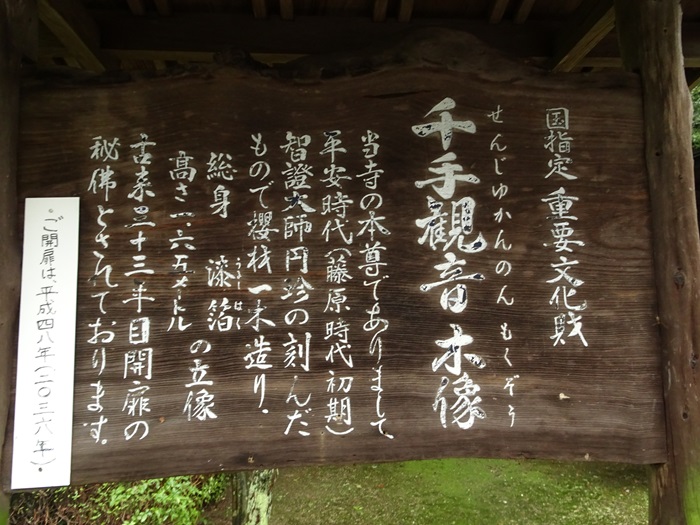 国指定 重要文化財
せんじゆかんのん もくぞう
千手観音 木像
当寺の本尊でありまして
平安時代(藤原時代初期)
智證大師円珍の刻んだ
もので櫻材一木造り.
うるしはく
総身 漆箔の立像
高さ一.六五メートル
古来三十三年目開扉の
秘佛とされております.
ご開扉は、平成四八年(二〇三六年).